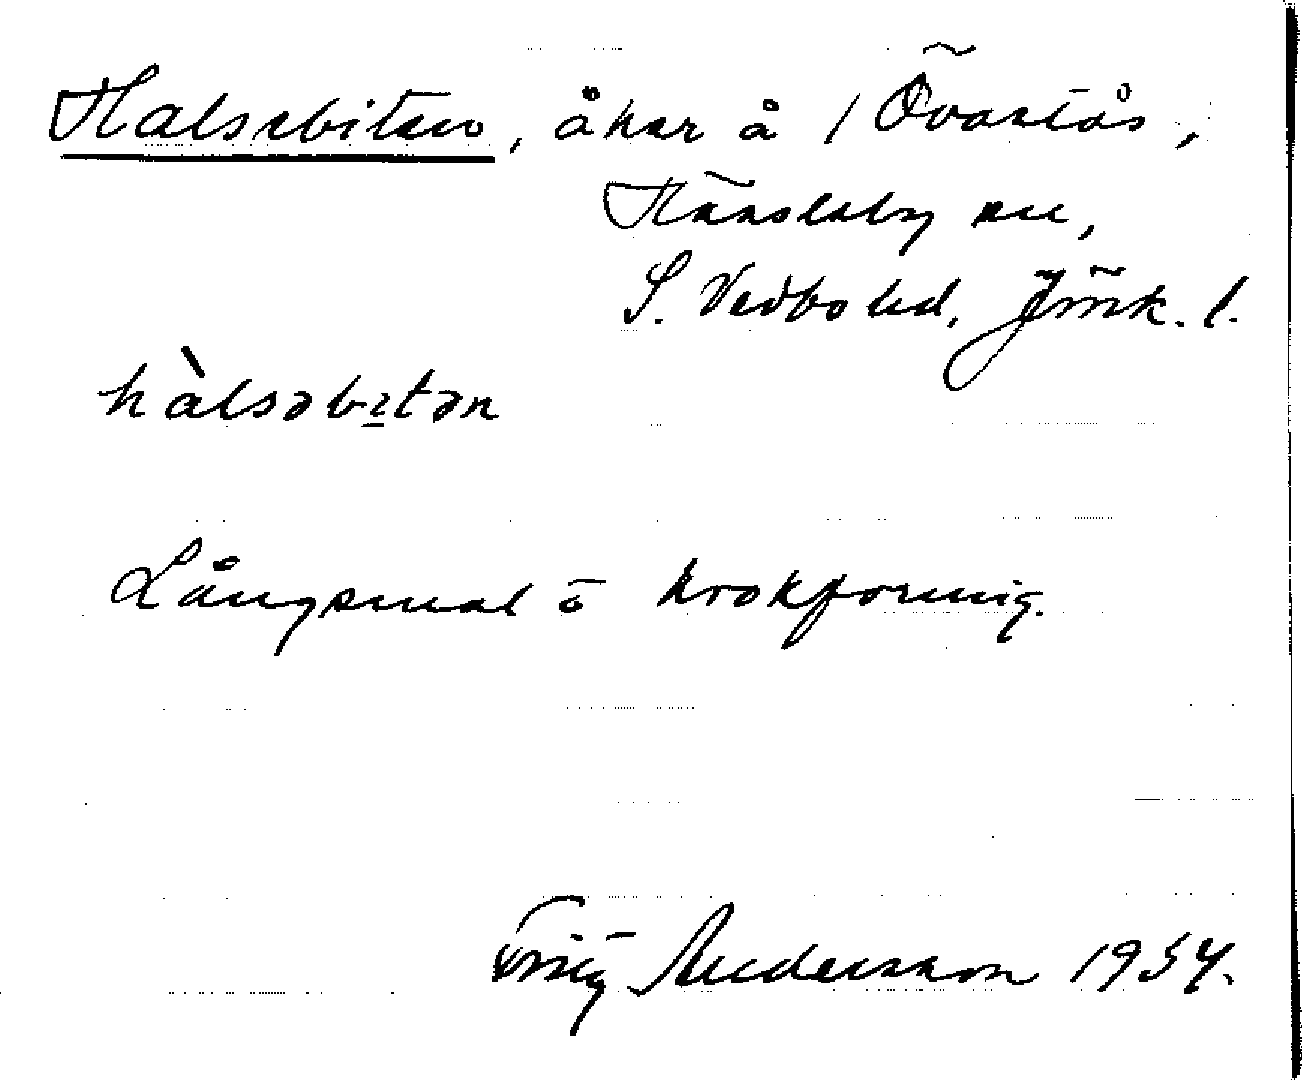 Halsebiten, åker å / Övarås,
Hässleby sn,
S. Vedbo hd, Jönk. l.
hàlsəbitən
Långsmal o krokformig.
Fritz Andersson 1934.